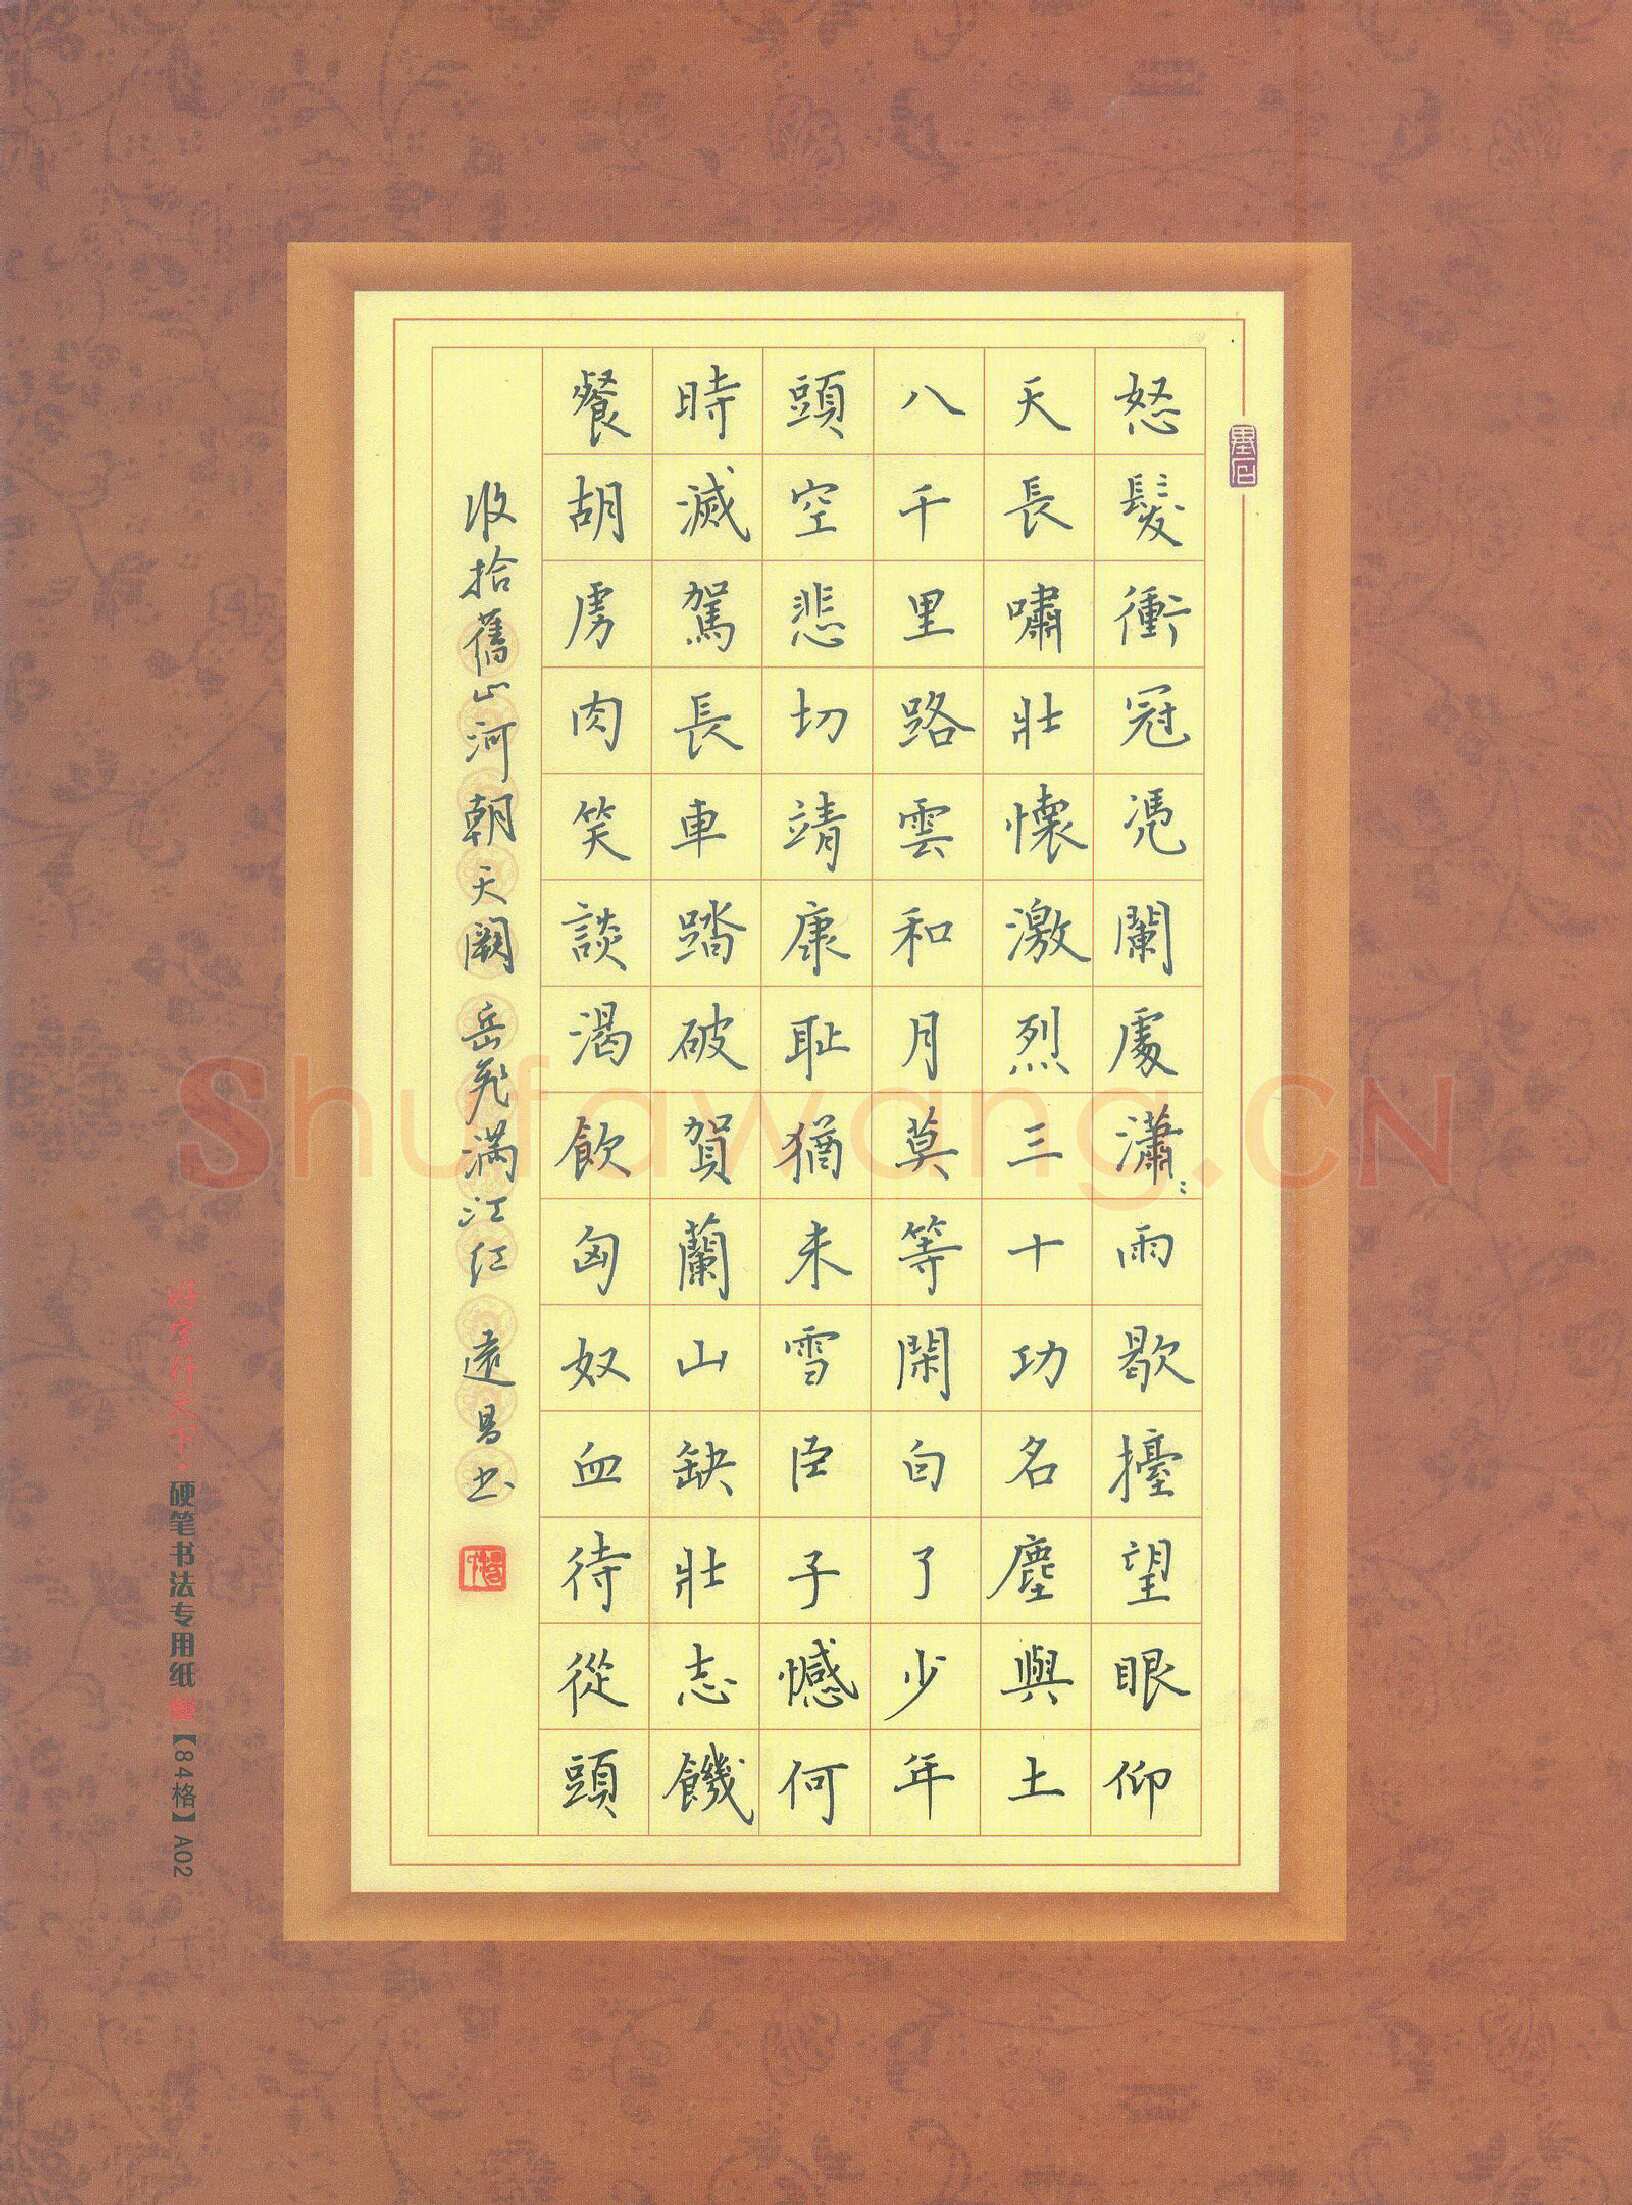 怒髮衝冠凴闌處瀟〻雨歇擡望眼仰
天長嘯壯懷激烈三十功名塵與土
八千里路雲和月莫等閑白了少年
頭空悲切靖康耻猶未雪臣子憾何
時滅駕長車踏破賀蘭山缺壯志饑
餐胡虜肉笑談渴飲匈奴血待從頭
收拾舊山河朝天闕 岳飛滿江紅 遠昌书
好字行天下·硬笔书法专用纸【84格】A02
Shufawang.CN